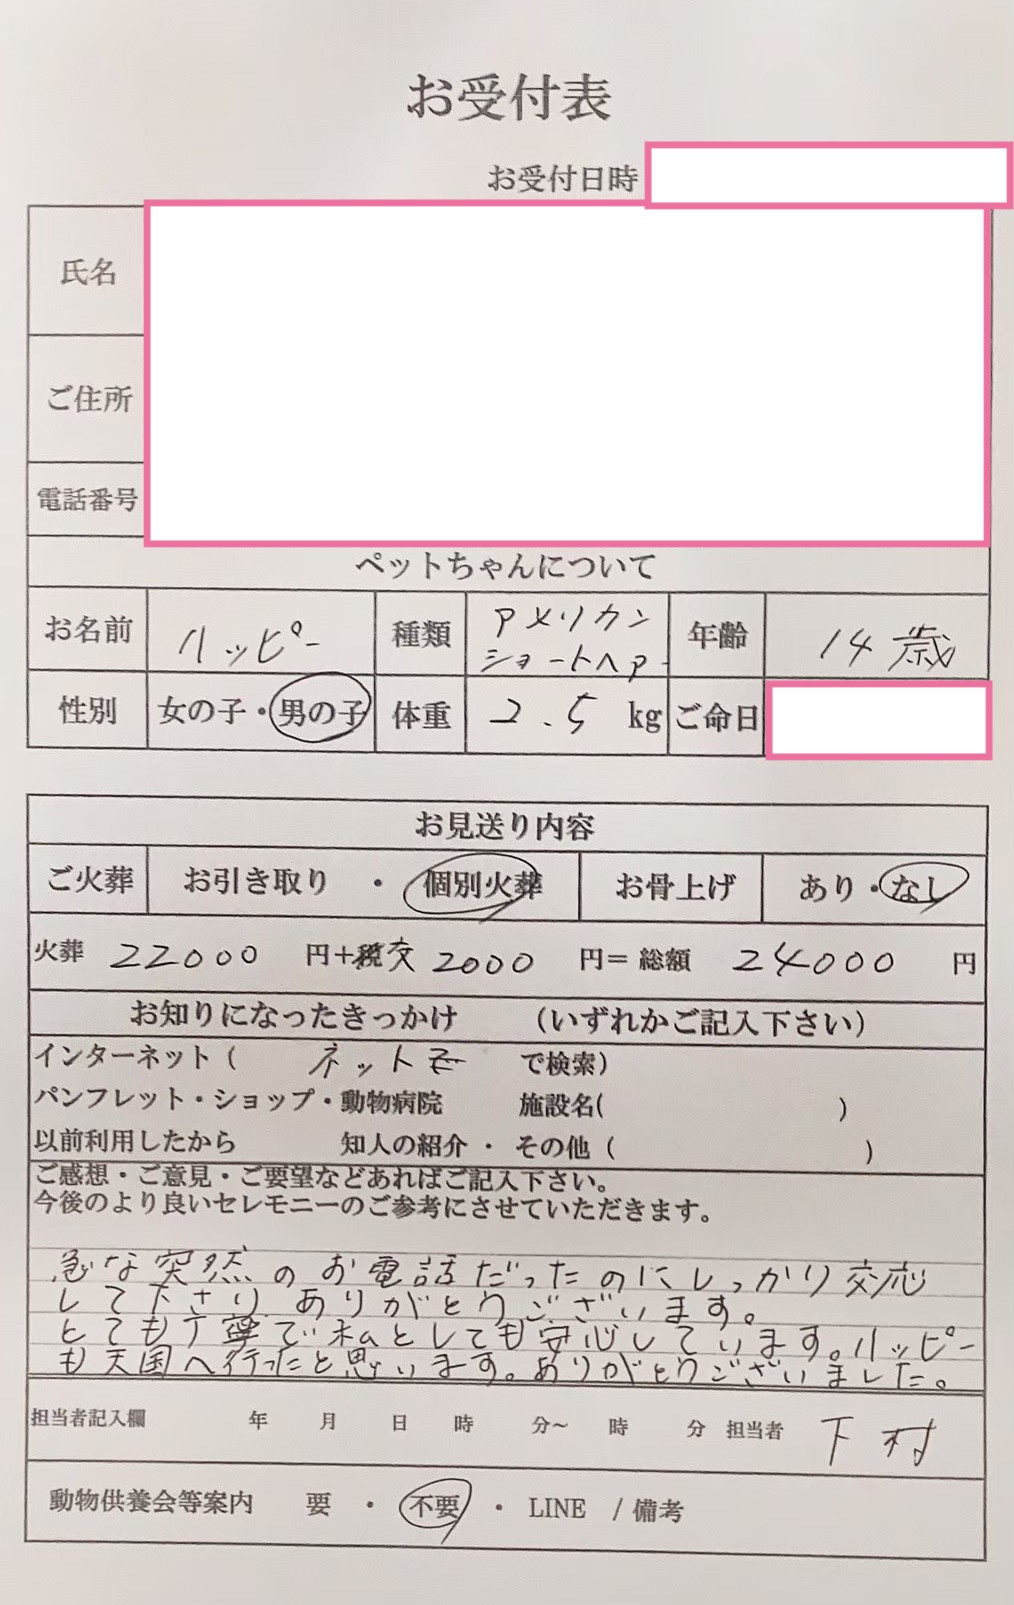 お受付表
お受付日時
氏名
ご住所
電話番号
ペットちゃんについて
お名前 ハッピー 種類 アメリカン ショートヘアー 年齢 14歳
性別 女の子・男の子 体重 2.5 kg ご命日
お見送り内容
ご火葬 お引き取り ・ 個別火葬 お骨上げ あり・なし
火葬 22000 円+税交 2000 円= 総額 24000 円
お知りになったきっかけ (いずれかご記入下さい)
インターネット ( ネット で検索)
パンフレット・ショップ・動物病院 施設名( )
以前利用したから 知人の紹介 ・ その他 ( )
ご感想・ご意見・ご要望などあればご記入下さい。
今後のより良いセレモニーのご参考にさせていただきます。
急な突然のお電話だったのにしっかり交応
して下さり、ありがとうございます。
とても丁寧で私としても安心しています。ハッピー
も天国へ行ったと思います。ありがとうございました。
担当者記入欄 年 月 日 時 分〜 時 分 担当者 下村
動物供養会等案内 要 ・ 不要 ・ LINE / 備考